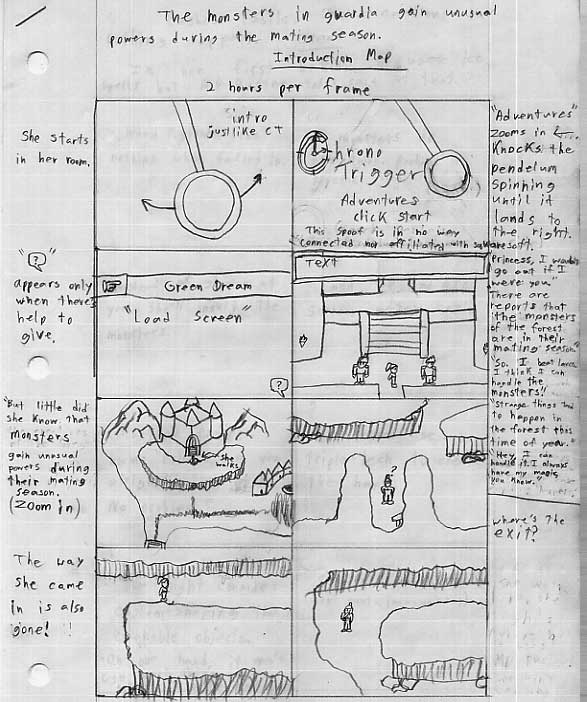 The monsters in guardia gain unusual
powers during the mating season.
Introduction Map
2 hours per frame
She starts
in her room.
intro
just like CT
Chrono
Trigger
Adventures
click start
This spoof is in no way
connected nor affiliated with squaresoft.
"Adventures"
zooms in
Knocks the
pendelum
spinning
until it
lands to
the right.
"?"
appears only
when there's
help to
give.
Green Dream
"Load Screen"
?
Text
"Princess, I wouldn't
go out if I
were you."
There are
reports that
the monsters
of the forest
are in their
mating season."
"So. I beat
I think I can
handle the
monsters!!
"Strange things
to happen in
the forest this
time of year."
"Hey, I can
handle it. I always
have my magic,
you know."
"But little did
she know that
monsters
gain unusual
powers during
their mating
season.
(Zoom in)
She
walks
?
where's the
exit?
The way
she came
in is also
gone!!